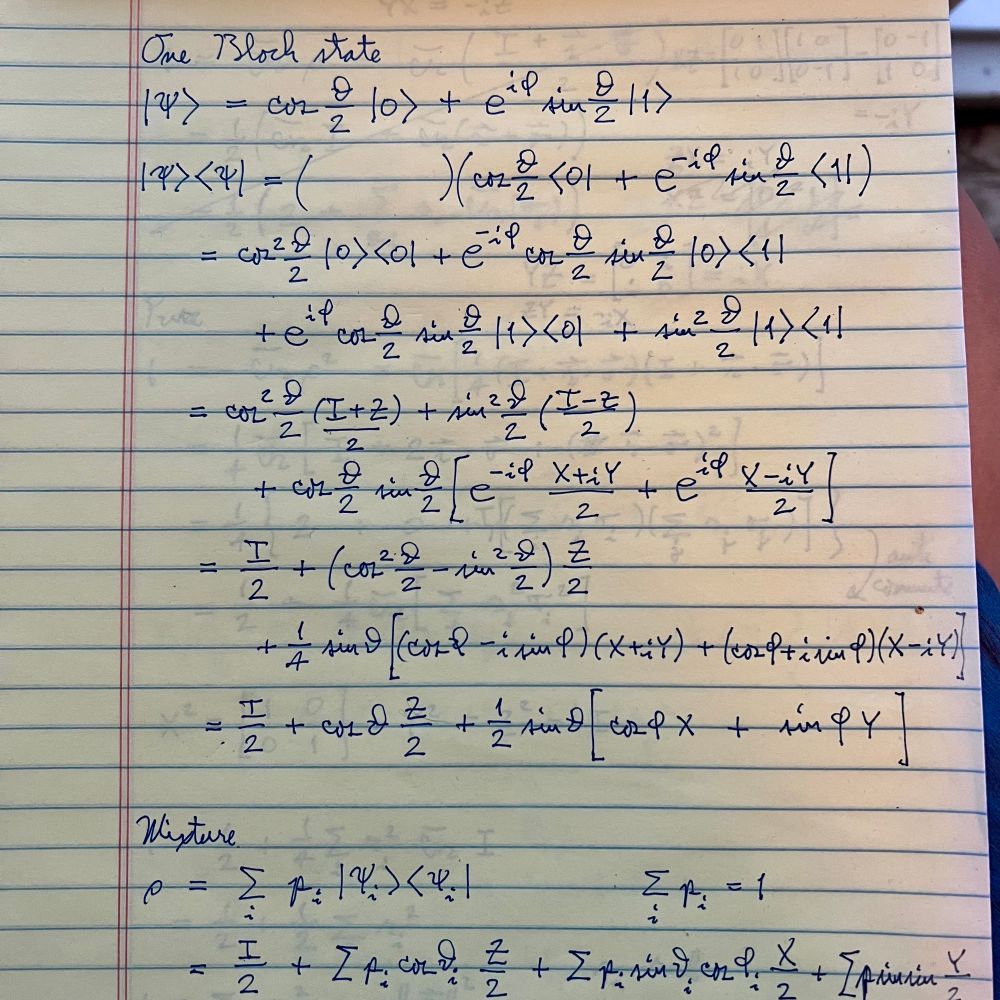 One Bloch state
|Ψ> = cos ϑ/2 |0> + e^{iφ} sin ϑ/2 |1>
|Ψ><Ψ| = ( )(cos ϑ/2 <0| + e^{-iφ} sin ϑ/2 <1|)
= cos² ϑ/2 |0><0| + e^{-iφ} cos ϑ/2 sin ϑ/2 |0><1|
+ e^{iφ} cos ϑ/2 sin ϑ/2 |1><0| + sin² ϑ/2 |1><1|
= cos² ϑ/2 (I+Z)/2 + sin² ϑ/2 (I-Z)/2
+ cos ϑ/2 sin ϑ/2 [e^{-iφ} (X+iY)/2 + e^{iφ} (X-iY)/2]
= I/2 + (cos² ϑ/2 - sin² ϑ/2) Z/2
+ 1/4 sin ϑ [(cos φ - i sin φ)(X+iY) + (cos φ + i sin φ)(X-iY)]
= I/2 + cos ϑ Z/2 + 1/2 sin ϑ [cos φ X + sin φ Y]
Mixture
ρ = Σ_i p_i |Ψ_i><Ψ_i| Σ_i p_i = 1
= I/2 + Σ p_i cos ϑ_i Z/2 + Σ p_i sin ϑ_i cos φ_i X/2 + Σ p sin sin Y/2